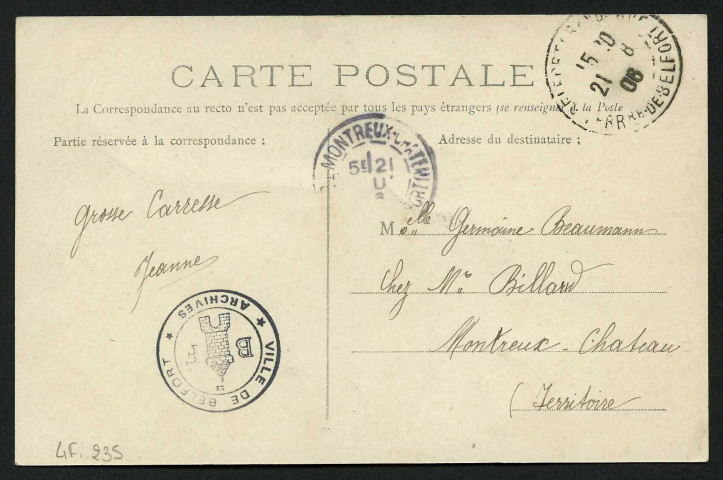 CARTE POSTALE
La Correspondance au recto n'est pas acceptée par tous les pays étrangers (se renseigner à la Poste
Partie réservée à la correspondance :
Adresse du destinataire :
TERR RE-DE-BELFORT
15 30
21 8
06
MONTREUX-CHATEAU
5E 21
Grosse Carresse
Jeanne
Melle Germaine Beaumann
Chez Mr Billard
Montreux-Chateau
(Territoire)
★ VILLE DE BELFORT ★ ARCHIVES
B F
4F. 235